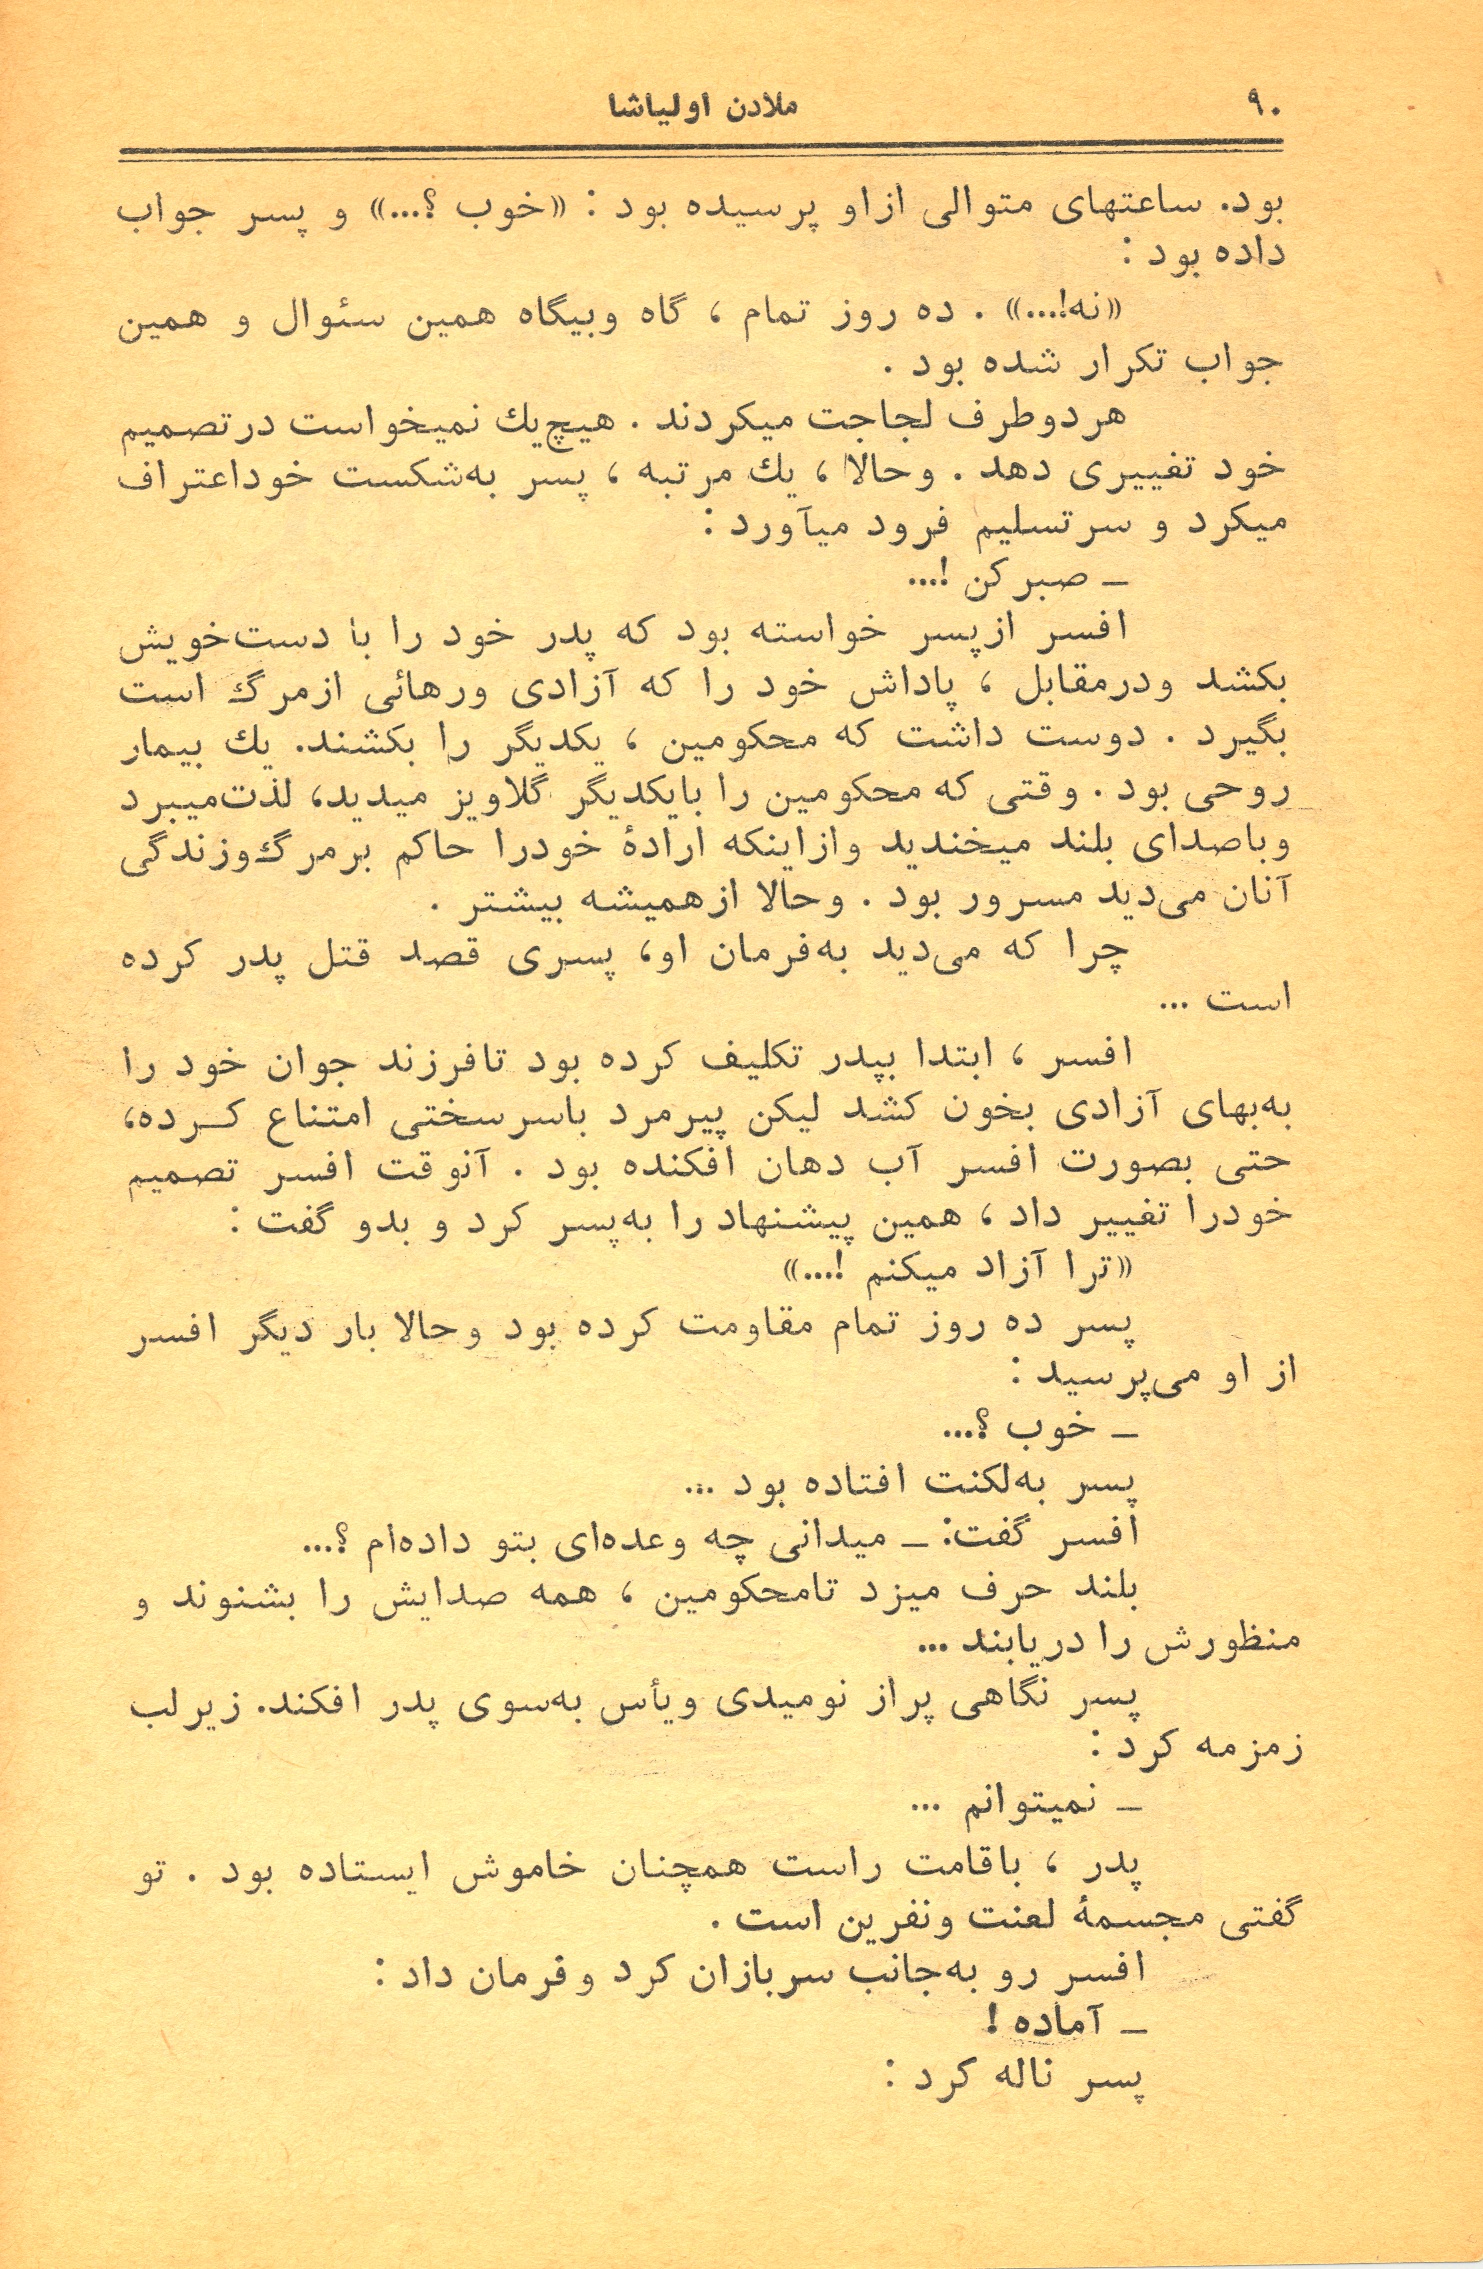 ۹۰
ملادن اولیاشا
بود. ساعتهای متوالی ازاو پرسیده بود : «خوب ؟...» و پسر جواب
داده بود :
«نه!...» . ده روز تمام ، گاه وبیگاه همین سئوال و همین
جواب تکرار شده بود .
هردوطرف لجاجت میکردند . هیچ‌یك نمیخواست درتصمیم
خود تغییری دهد . وحالا ، یك مرتبه ، پسر به‌شکست خوداعتراف
میکرد و سرتسلیم فرود میآورد :
ـ صبرکن !...
افسر ازپسر خواسته بود که پدر خود را با دست‌خویش
بکشد ودرمقابل ، پاداش خود را که آزادی ورهائی ازمرگ است
بگیرد . دوست داشت که محکومین ، یکدیگر را بکشند. یك بیمار
روحی بود . وقتی که محکومین را بایکدیگر گلاویز میدید، لذت‌میبرد
وباصدای بلند میخندید وازاینکه ارادهٔ خودرا حاکم برمرگ‌وزندگی
آنان می‌دید مسرور بود . وحالا ازهمیشه بیشتر .
چرا که می‌دید به‌فرمان او، پسری قصد قتل پدر کرده
است ...
افسر ، ابتدا بپدر تکلیف کرده بود تافرزند جوان خود را
به‌بهای آزادی بخون کشد لیکن پیرمرد باسرسختی امتناع کـرده،
حتی بصورت افسر آب دهان افکنده بود . آنوقت افسر تصمیم
خودرا تغییر داد ، همین پیشنهاد را به‌پسر کرد و بدو گفت :
«ترا آزاد میکنم !...»
پسر ده روز تمام مقاومت کرده بود وحالا بار دیگر افسر
از او می‌پرسید :
ـ خوب ؟...
پسر به‌لکنت افتاده بود ...
افسر گفت: ـ میدانی چه وعده‌ای بتو داده‌ام ؟...
بلند حرف میزد تامحکومین ، همه صدایش را بشنوند و
منظورش را دریابند ...
پسر نگاهی پراز نومیدی ویأس به‌سوی پدر افکند. زیرلب
زمزمه کرد :
ـ نمیتوانم ...
پدر ، باقامت راست همچنان خاموش ایستاده بود . تو
گفتی مجسمهٔ لعنت ونفرین است .
افسر رو به‌جانب سربازان کرد وفرمان داد :
ـ آماده !
پسر ناله کرد :